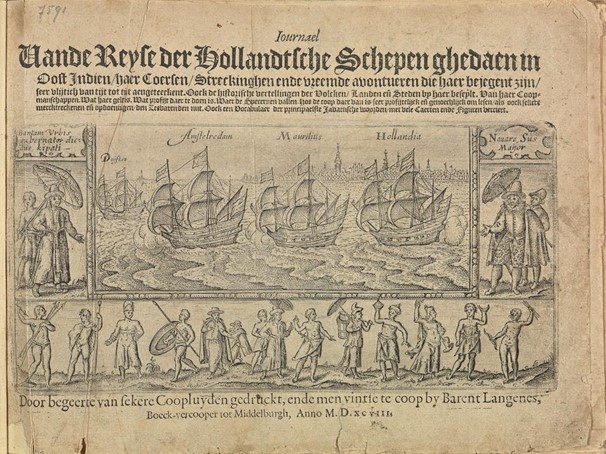 7591
Iournael
Vande Reyse der Hollandtsche Schepen ghedaen in
Oost Indien/ haer Coersen/ Streckinghen ende vreemde avontueren die haer bejegent zijn/
seer vlijtich van tijt tot tijt aengeteeckent. Oock de historische vertellingen der Volcken/ Landen eñ Steden by haer beseylt. Van haer Coop-
manschappen. Wat haer geldts. Wat profijt daer te doen is. Waer de Specerien vallen. Hoe de coop daer van is: seer profijtelijck eñ genoechelijck om lesen/ als oock sekere
merckteeckenen eñ opdoeningen den Zeevarenden nut. Oock een Vocabulare der principaelste Javaensche woorden/ met vele Caerten ende Figuren verciert.
Bantam Urbis
gubernator dictus
kipati
Duyfken
Amstelredam
Mauritius
Hollandia
Navarc, Sus
Maiſor
Door begeerte van sekere Coopluyden gedruckt, ende men vintse te coop by Barent Langenes,
Boeck-vercooper tot Middelburgh, Anno M. D. XCVIII.